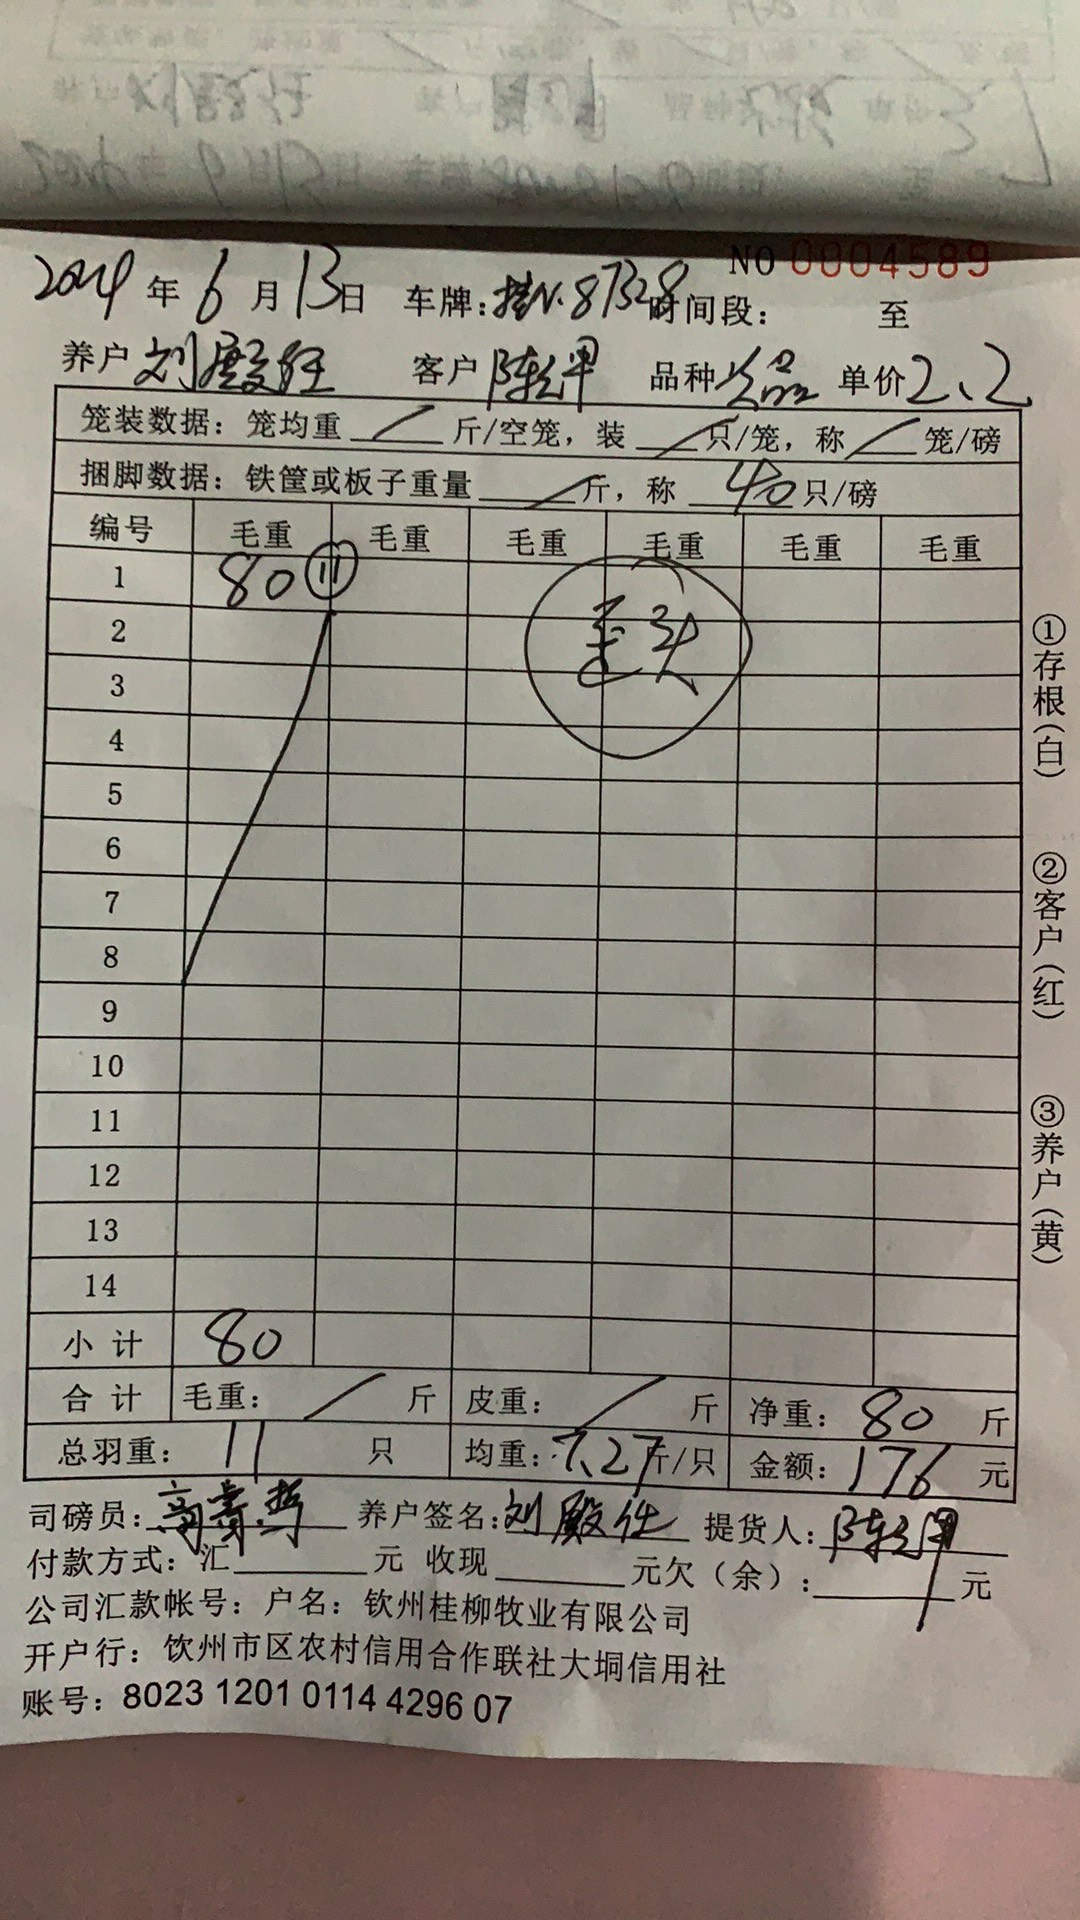 NO 0004589
2024年6月13日 车牌：桂N·87328 时间段： 至
养户 刘殿仕 客户 陈 品种 次品 单价 2.2
笼装数据：笼均重 / 斤/空笼，装 / 只/笼，称 / 笼/磅
捆脚数据：铁筐或板子重量 / 斤，称 40 只/磅
编号 毛重 毛重 毛重 毛重 毛重 毛重
1 80 ⑪
2 歪头
3
4
5
6
7
8
9
10
11
12
13
14
小计 80
合计 毛重： / 斤 皮重： / 斤 净重：80 斤
总羽重：11 只 均重：7.27斤/只 金额：176 元
司磅员：高 养户签名：刘殿仕 提货人：陈
付款方式：汇 元 收现 元欠（余）： 元
公司汇款帐号：户名：钦州桂柳牧业有限公司
开户行：饮州市区农村信用合作联社大垌信用社
账号：8023 1201 0114 4296 07
①存根（白）
②客户（红）
③养户（黄）